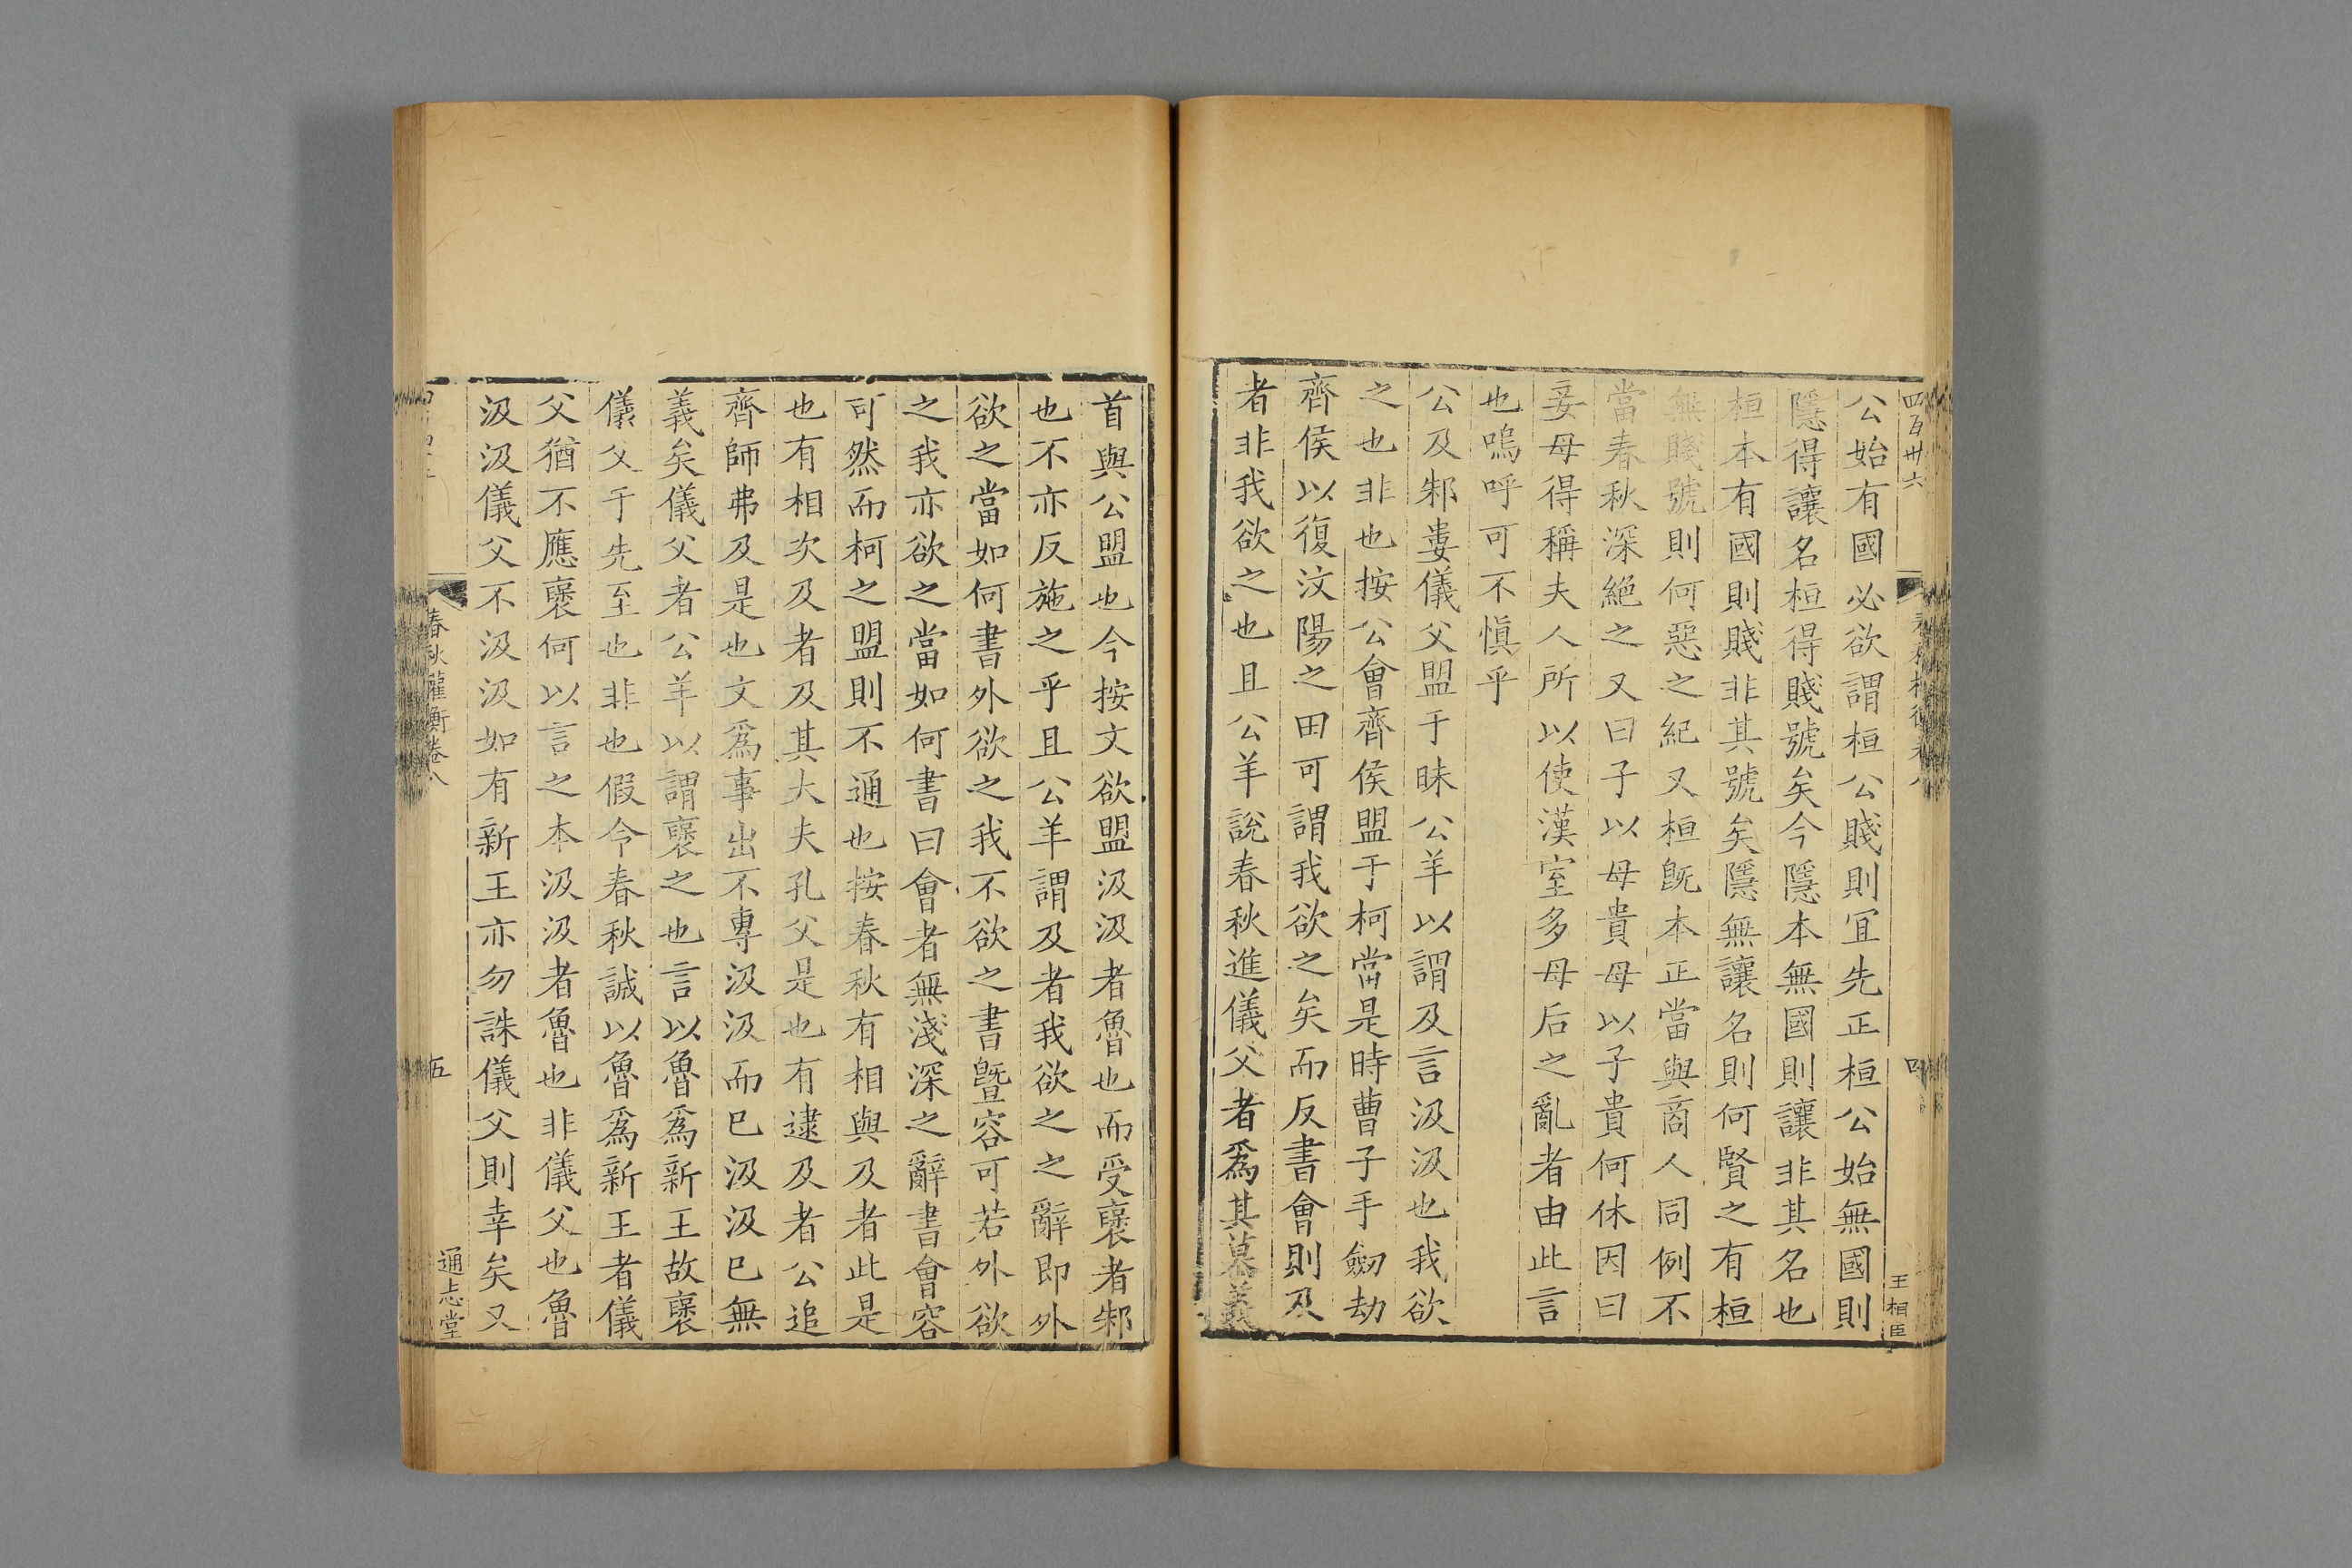 四百卅六
王相臣
公始有國必欲謂桓公賤則宜先正桓公始無國則
隱得讓名桓得賤號矣今隱本無國則讓非其名也
桓本有國則賤非其號矣隱無讓名則何賢之有桓
無賤號則何惡之紀又桓既本正當與商人同例不
當春秋深絕之又曰子以母貴母以子貴何休因曰
妾母得稱夫人所以使漢室多母后之亂者由此言
也嗚呼可不慎乎
公及邾婁儀父盟于昧公羊以謂及言汲汲也我欲
之也非也按公會齊侯盟于柯當是時曹子手劒劫
齊侯以復汶陽之田可謂我欲之矣而反書會則及
者非我欲之也且公羊說春秋進儀父者爲其慕義
首與公盟也今按文欲盟汲汲者魯也而受襃者邾
也不亦反施之乎且公羊謂及者我欲之之辭即外
欲之當如何書外欲之我不欲之書曁容可若外欲
之我亦欲之當如何書曰會者無淺深之辭書會容
可然而柯之盟則不通也按春秋有相與及者此是
也有相次及者及其大夫孔父是也有逮及者公追
齊師弗及是也文爲事出不專汲汲而已汲汲已無
義矣儀父者公羊以謂襃之也言以魯爲新王故襃
儀父于先至也非也假令春秋誠以魯爲新王者儀
父猶不應襃何以言之本汲汲者魯也非儀父也魯
汲汲儀父不汲汲如有新王亦勿誅儀父則幸矣又
春秋權衡卷八
五
通志堂